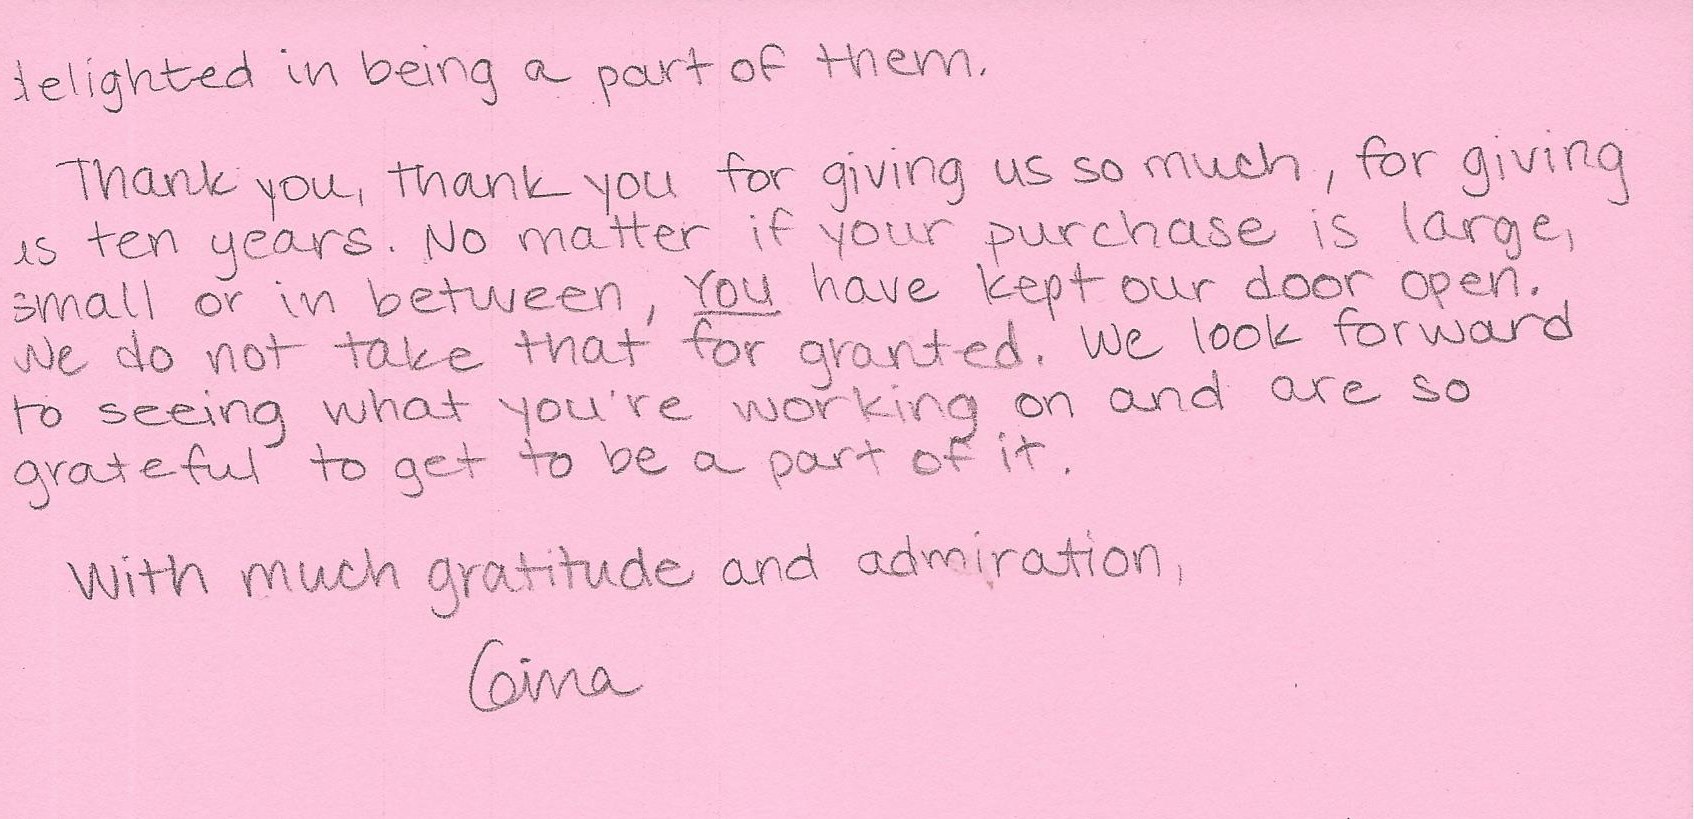 delighted in being a part of them.
Thank you, thank you for giving us so much, for giving
us ten years. No matter if your purchase is large,
small or in between, you have kept our door open.
We do not take that for granted. We look forward
to seeing what you're working on and are so
grateful to get to be a part of it.
With much gratitude and admiration,
Gina